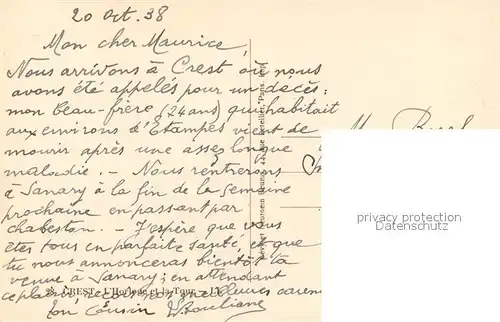 20 Oct. 38
Mon cher Maurice,
Nous arrivons à Crest où nous
avons été appelés pour un décès :
mon beau-frère (24 ans) qui habitait
aux environs d'Etampes vient de
mourir après une assez longue
maladie. - Nous rentrerons
à Sanary à la fin de la semaine
prochaine en passant par
Chabeston. - J'espère que vous
êtes tous en parfaite santé, et que
tu nous annonceras bientôt ta
venue à Sanary ; en attendant
ce plaisir, reçois nos meilleures caresses
Ton Cousin
28. CREST - L'Horloge et la Tour - LL
M.
privacy protection
Datenschutz